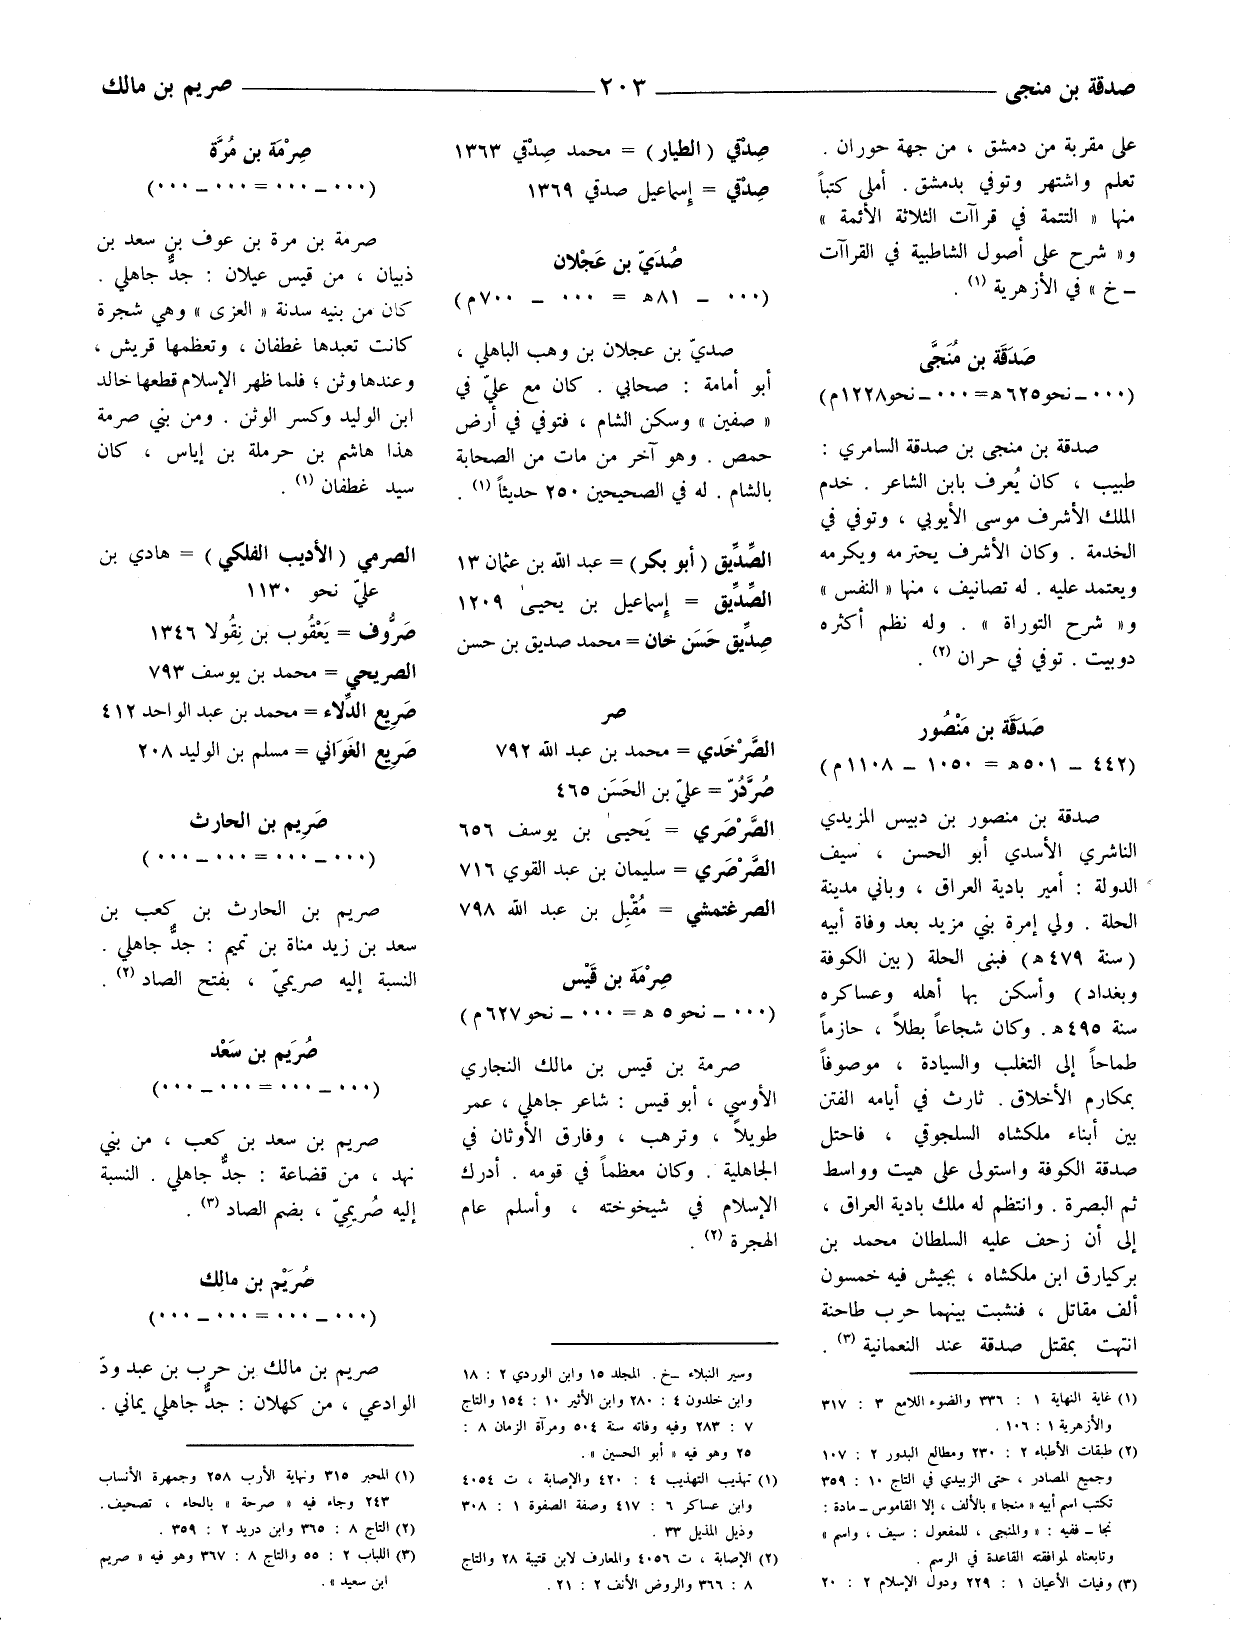 صدقة بن منجى ٢٠٣ صريم بن مالك
على مقربة من دمشق ، من جهة حوران .
تعلم واشتهر وتوفي بدمشق . أملى كتباً
منها « التتمة في قراآت الثلاثة الأئمة »
و« شرح على أصول الشاطبية في القراآت
ـ خ » في الأزهرية (١) .
صَدَقَة بن مُنَجَّى
(٠٠٠ ـ نحو ٦٢٥ هـ = ٠٠٠ ـ نحو ١٢٢٨ م)
صدقة بن منجى بن صدقة السامري :
طبيب ، كان يُعرف بابن الشاعر . خدم
الملك الأشرف موسى الأيوبي ، وتوفي في
الخدمة . وكان الأشرف يحترمه ويكرمه
ويعتمد عليه . له تصانيف ، منها « النفس »
و« شرح التوراة » . وله نظم أكثره
دوبيت . توفي في حران (٢) .
صَدَقَة بن مَنْصُور
(٤٤٢ ـ ٥٠١ هـ = ١٠٥٠ ـ ١١٠٨ م)
صدقة بن منصور بن دبيس المزيدي
الناشري الأسدي أبو الحسن ، سيف
الدولة : أمير بادية العراق ، وباني مدينة
الحلة . ولي إمرة بني مزيد بعد وفاة أبيه
(سنة ٤٧٩ هـ) فبنى الحلة (بين الكوفة
وبغداد) وأسكن بها أهله وعساكره
سنة ٤٩٥ هـ . وكان شجاعاً بطلاً ، حازماً
طماحاً إلى التغلب والسيادة ، موصوفاً
بمكارم الأخلاق . ثارث في أيامه الفتن
بين أبناء ملكشاه السلجوقي ، فاحتل
صدقة الكوفة واستولى على هيت وواسط
ثم البصرة . وانتظم له ملك بادية العراق ،
إلى أن زحف عليه السلطان محمد بن
بركيارق ابن ملكشاه ، بجيش فيه خمسون
ألف مقاتل ، فنشبت بينهما حرب طاحنة
انتهت بمقتل صدقة عند النعمانية (٣) .
(١) غاية النهاية ١ : ٣٣٦ والضوء اللامع ٣ : ٣١٧
والأزهرية ١ : ١٠٦ .
(٢) طبقات الأطباء ٢ : ٢٣٠ ومطالع البدور ٢ : ١٠٧
وجميع المصادر ، حتى الزبيدي في التاج ١٠ : ٣٥٩
تكتب اسم أبيه « منجا » بالألف ، إلا القاموس ـ مادة :
نجا ـ ففيه : « والمنجى ، للمفعول : سيف ، واسم »
وتابعناه لموافقته القاعدة في الرسم .
(٣) وفيات الأعيان ١ : ٢٢٩ ودول الإسلام ٢ : ٢٠
صِدْقي (الطيار) = محمد صِدْقي ١٣٦٣
صِدْقي = إسماعيل صدقي ١٣٦٩
صُدَيّ بن عَجْلان
(٠٠٠ ـ ٨١ هـ = ٠٠٠ ـ ٧٠٠ م)
صديّ بن عجلان بن وهب الباهلي ،
أبو أمامة : صحابي . كان مع عليّ في
« صفين » وسكن الشام ، فتوفي في أرض
حمص . وهو آخر من مات من الصحابة
بالشام . له في الصحيحين ٢٥٠ حديثاً (١) .
الصِّدِّيق (أبو بكر) = عبد الله بن عثمان ١٣
الصِّدِّيق = إسماعيل بن يحيىٰ ١٢٠٩
صِدِّيق حَسَن خان = محمد صديق بن حسن
صر
الصَّرْخَدي = محمد بن عبد الله ٧٩٢
صُرَّدُرّ = عليّ بن الحَسَن ٤٦٥
الصَّرْصَري = يَحيىٰ بن يوسف ٦٥٦
الصَّرْصَري = سليمان بن عبد القوي ٧١٦
الصرغتمشي = مُقْبِل بن عبد الله ٧٩٨
صِرْمَة بن قَيْس
(٠٠٠ ـ نحو ٥ هـ = ٠٠٠ ـ نحو ٦٢٧ م)
صرمة بن قيس بن مالك النجاري
الأوسي ، أبو قيس : شاعر جاهلي ، عمر
طويلاً ، وترهب ، وفارق الأوثان في
الجاهلية . وكان معظماً في قومه . أدرك
الإسلام في شيخوخته ، وأسلم عام
الهجرة (٢) .
وسير النبلاء ـ خ . المجلد ١٥ وابن الوردي ٢ : ١٨
وابن خلدون ٤ : ٢٨٠ وابن الأثير ١٠ : ١٥٤ والتاج
٧ : ٢٨٣ وفيه وفاته سنة ٥٠٤ ومرآة الزمان ٨ :
٢٥ وهو فيه « أبو الحسين » .
(١) تهذيب التهذيب ٤ : ٤٢٠ والإصابة ، ت ٤٠٥٤
وابن عساكر ٦ : ٤١٧ وصفة الصفوة ١ : ٣٠٨
وذيل المذيل ٣٣ .
(٢) الإصابة ، ت ٤٠٥٦ والمعارف لابن قتيبة ٢٨ والتاج
٨ : ٣٦٦ والروض الأنف ٢ : ٢١ .
صِرْمَة بن مُرَّة
(٠٠٠ ـ ٠٠٠ = ٠٠٠ ـ ٠٠٠)
صرمة بن مرة بن عوف بن سعد بن
ذبيان ، من قيس عيلان : جدٌّ جاهلي .
كان من بنيه سدنة « العزى » وهي شجرة
كانت تعبدها غطفان ، وتعظمها قريش ،
وعندها وثن ؛ فلما ظهر الإسلام قطعها خالد
ابن الوليد وكسر الوثن . ومن بني صرمة
هذا هاشم بن حرملة بن إياس ، كان
سيد غطفان (١) .
الصرمي (الأديب الفلكي) = هادي بن
عليّ نحو ١١٣٠
صَرُّوف = يَعْقُوب بن نِقُولا ١٣٤٦
الصريحي = محمد بن يوسف ٧٩٣
صَرِيع الدِّلاء = محمد بن عبد الواحد ٤١٢
صَرِيع الغَوَاني = مسلم بن الوليد ٢٠٨
صَرِيم بن الحارث
(٠٠٠ ـ ٠٠٠ = ٠٠٠ ـ ٠٠٠)
صريم بن الحارث بن كعب بن
سعد بن زيد مناة بن تميم : جدٌّ جاهلي .
النسبة إليه صريميّ ، بفتح الصاد (٢) .
صُرَيم بن سَعْد
(٠٠٠ ـ ٠٠٠ = ٠٠٠ ـ ٠٠٠)
صريم بن سعد بن كعب ، من بني
نهد ، من قضاعة : جدٌّ جاهلي . النسبة
إليه صُريمِيّ ، بضم الصاد (٣) .
صُرَيْم بن مالِك
(٠٠٠ ـ ٠٠٠ = ٠٠٠ ـ ٠٠٠)
صريم بن مالك بن حرب بن عبد ودّ
الوادعي ، من كهلان : جدٌّ جاهلي يماني .
(١) المحبر ٣١٥ ونهاية الأرب ٢٥٨ وجمهرة الأنساب
٢٤٣ وجاء فيه « صرحة » بالحاء ، تصحيف .
(٢) التاج ٨ : ٣٦٥ وابن دريد ٢ : ٣٥٩ .
(٣) اللباب ٢ : ٥٥ والتاج ٨ : ٣٦٧ وهو فيه « صريم
ابن سعيد » .